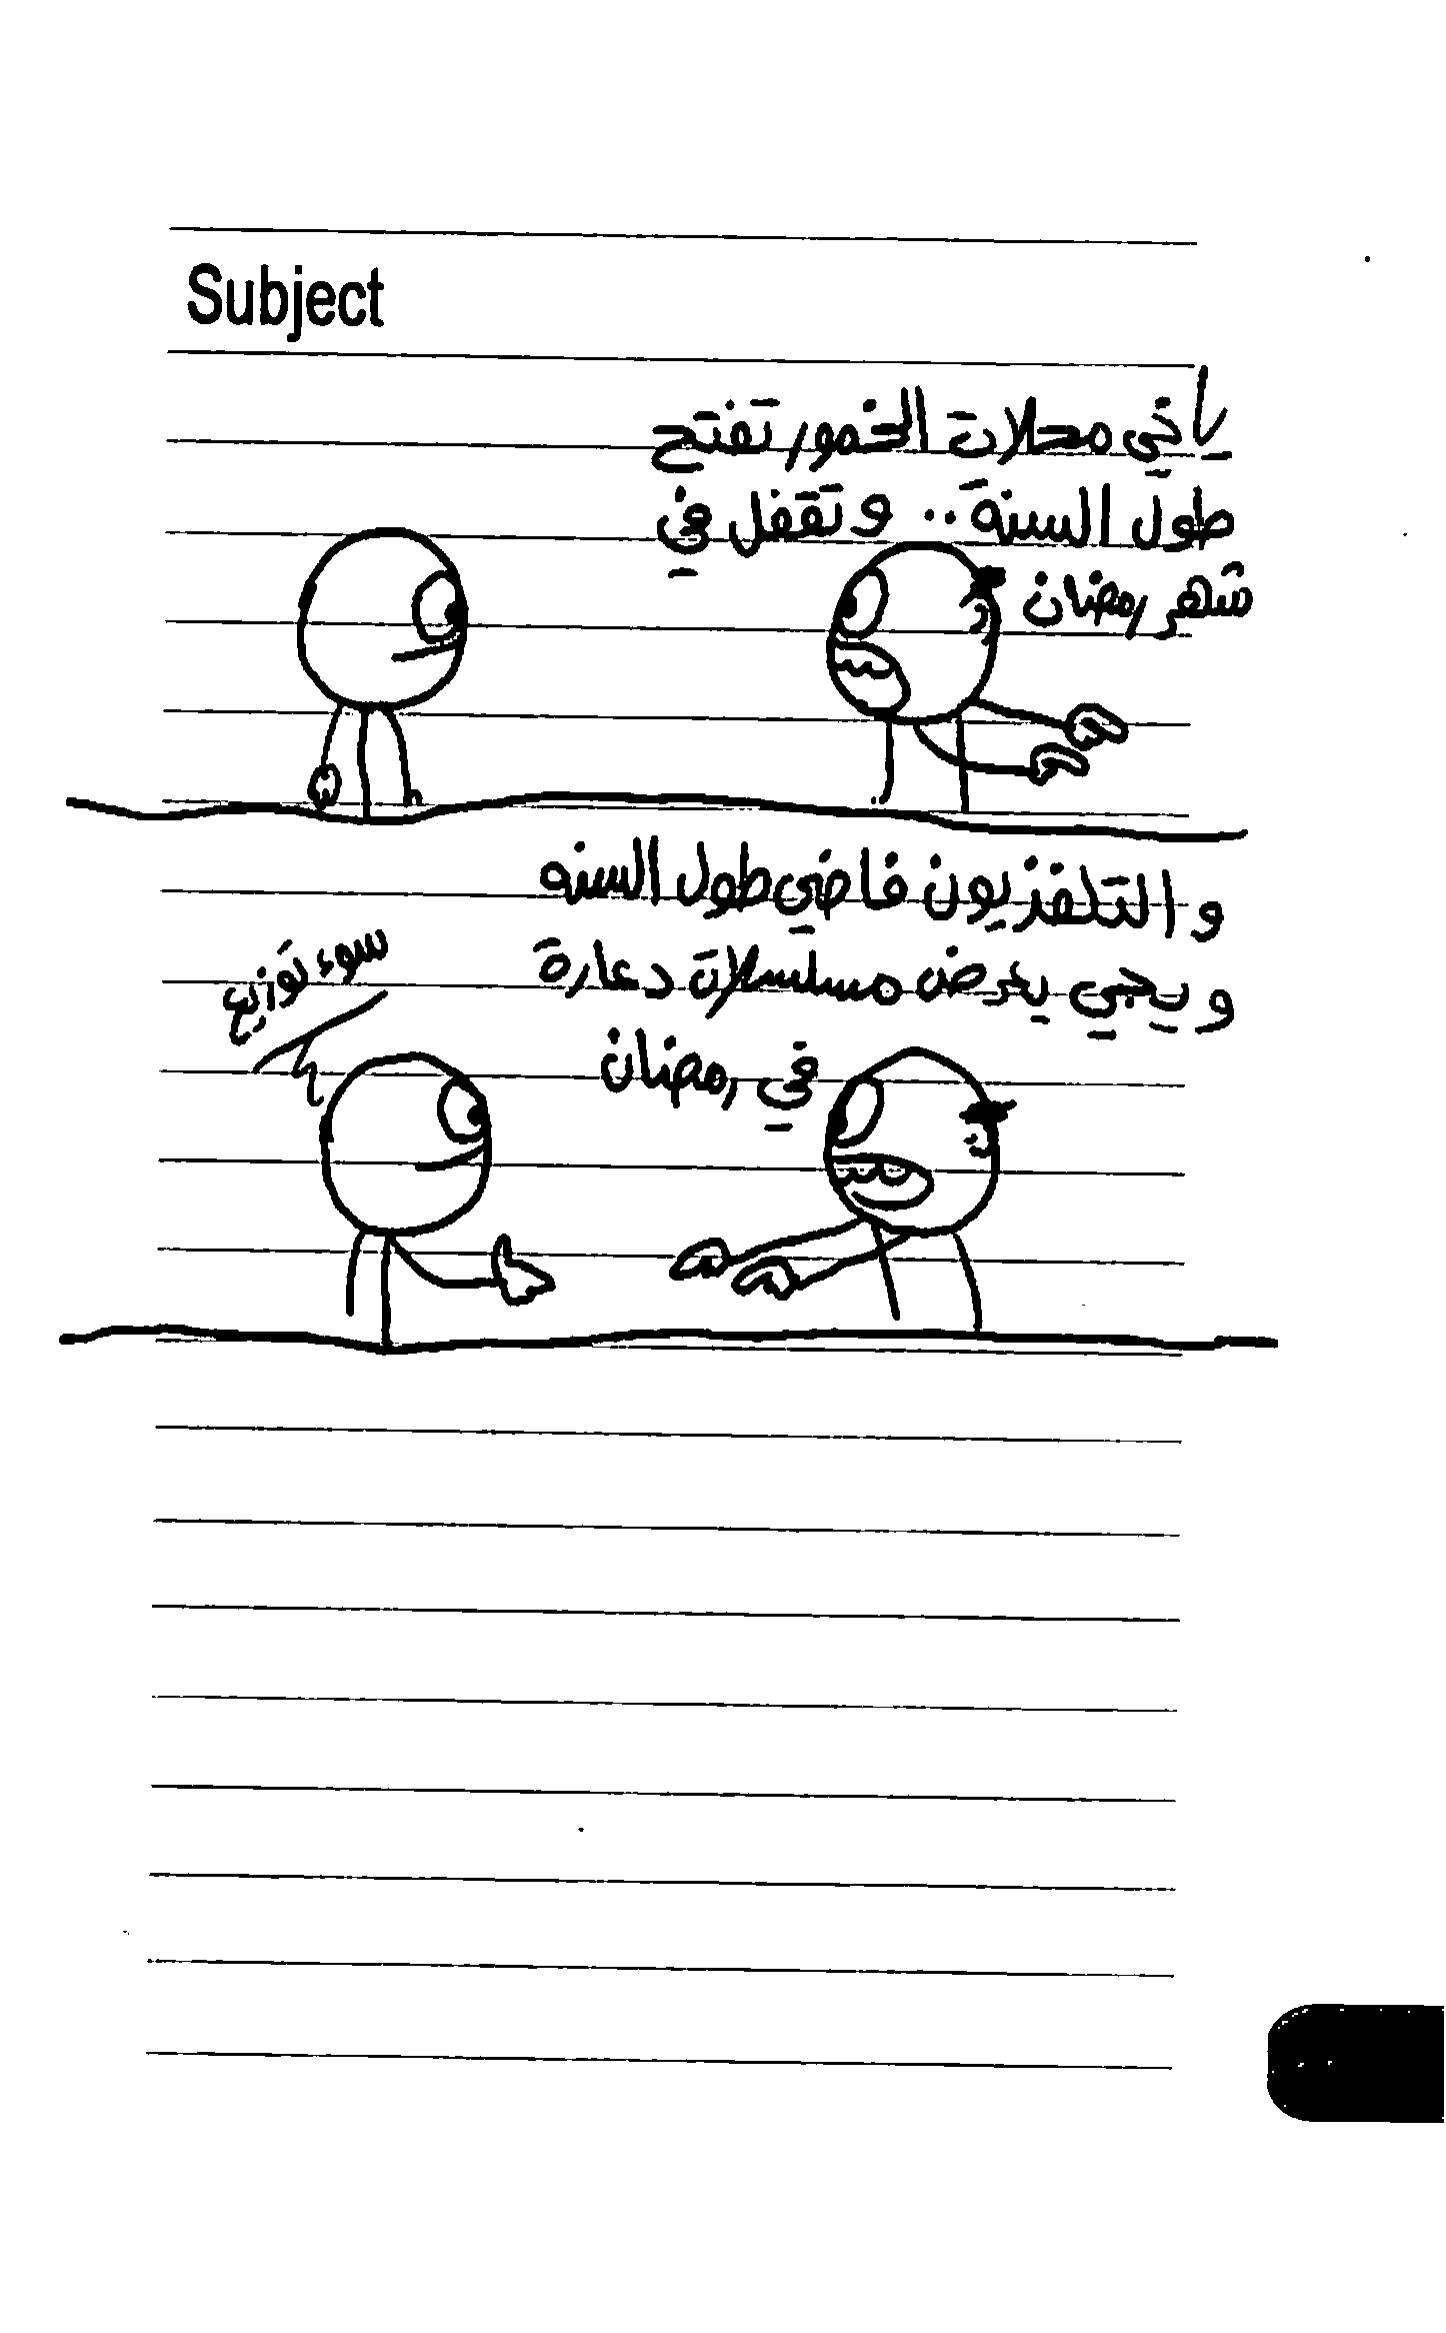 Subject
ياخي محلات الخمور تفتح
طول السنة .. و تقفل في
شهر رمضان
و التلفزيون فاضي طول السنه
و يجي يعرض مسلسلات دعارة
في رمضان
سوء توزيع